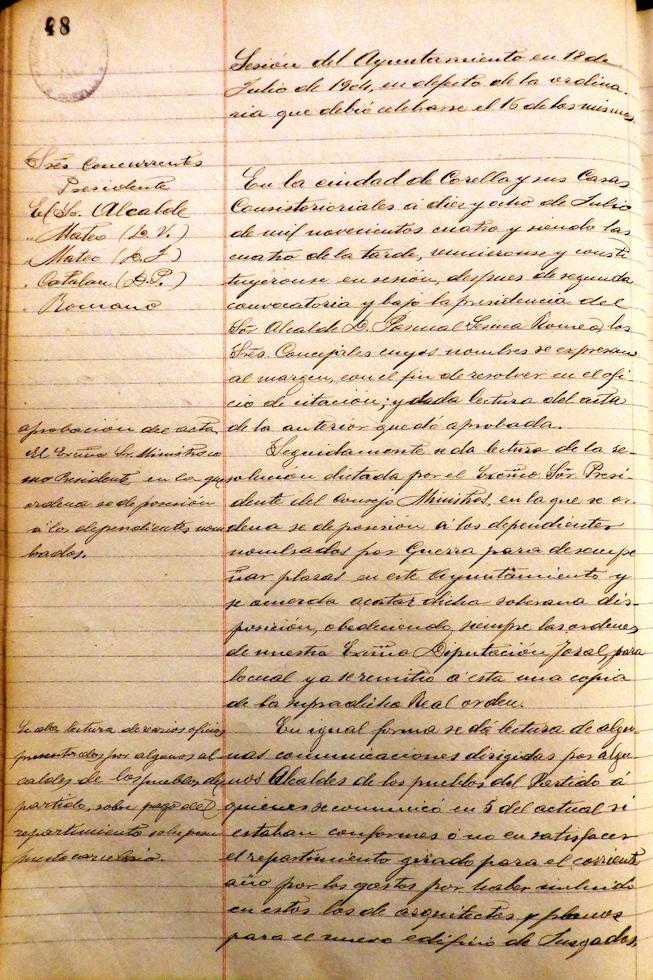 48
Sesión del Ayuntamiento en 18 de
Julio de 1904, en defecto de la ordina-
ria que debió celebrarse el 16 de los mismos.
Sres Concurrentes
Presidente
El Sr. Alcalde
" Mateo (D. V.)
" Mateo (D. J)
" Catalan (D. P.)
" Romano
En la ciudad de Corella y sus Casas
Consistoriales á diez y ocho de Julio
de mil novecientos cuatro y siendo las
cuatro de la tarde, reunieronse y consti
tuyeronse en sesión, despues de segunda
convocatoria y bajo la presidencia del
Sör Alcalde D. Pascual Sesma Romeo, los
Sres. Concejales cuyos nombres se expresan
al margen, con el fin de resolver en el ofi
cio de citación; y dada lectura del acta
de la anterior quedó aprobada.
aprobación del acta
Seguidamente se da lectura de la re-
solución dictada por el Excmo Sör. Presi
dente del Consejo Ministros, en la que se or-
dena se de posesión á los dependientes
nombrados por Guerra para desempe
ñar plazas en este Ayuntamiento y
se acuerda acatar dicha soberana dis-
posición, obedeciendo, siempre las ordenes
de nuestra Excma Diputación Foral, para
lo cual ya se remitió á esta una copia
de la supradicha Real orden.
El Excmo Sr. Ministro co
mo Presidente en la que
ordena se de posesión
á los dependientes nom
brados.
En igual forma se dá lectura de algu-
nas comunicaciones dirigidas por algu-
nos Alcaldes de los pueblos del Partido á
quienes se comunicó en 5 del actual si
estaban conformes ó no en satisfacer
el repartimiento girado para el corriente
año por los gastos por haber incluido
en estos los de arquitectos y planos
para el nuevo edificio de Juzgados,
Se da lectura de varios oficios
presentados por algunos al
caldes de los pueblos del
partido, sobre pago del
repartimiento sobre presu
puesto carcelario.